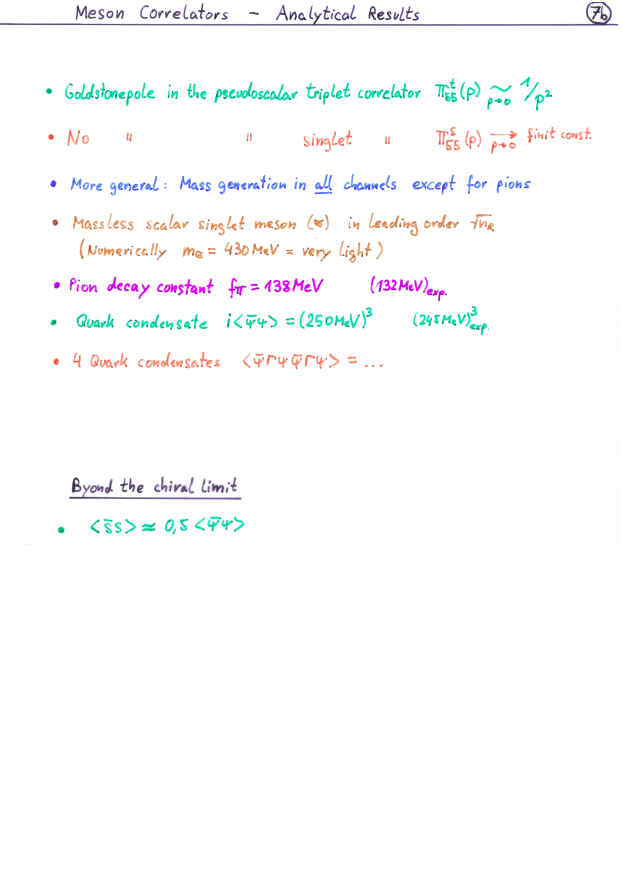 Meson Correlators – Analytical Results 7b
• Goldstonepole in the pseudoscalar triplet correlator Π₅₅ᵗ(p) ~ p→0 1/p²
• No " " singlet " Π₅₅ˢ(p) → p→0 finit const.
• More general: Mass generation in all channels except for pions
• Massless scalar singlet meson (σ) in leading order √n_R
(Numerically m_σ = 430 MeV = very light)
• Pion decay constant f_π = 138 MeV (132 MeV)exp.
• Quark condensate i<ψ̄ψ> = (250 MeV)³ (245 MeV)³exp.
• 4 Quark condensates <ψ̄Γψ ψ̄Γψ> = ...
Byond the chiral limit
• <s̄s> ≈ 0,5 <ψ̄ψ>